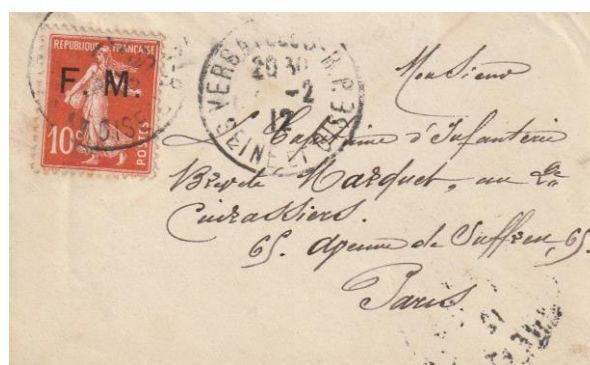 REPUBLIQUE FRANÇAISE
F. M.
10c
POSTES
VERSAILLES R. P.
20 30
-2
12
SEINE ET OISE
Monsieur
Le Capitaine d'Infanterie
Breveté Marquet, au 2e
Cuirassiers.
65. Avenue de Suffren, 65.
Paris